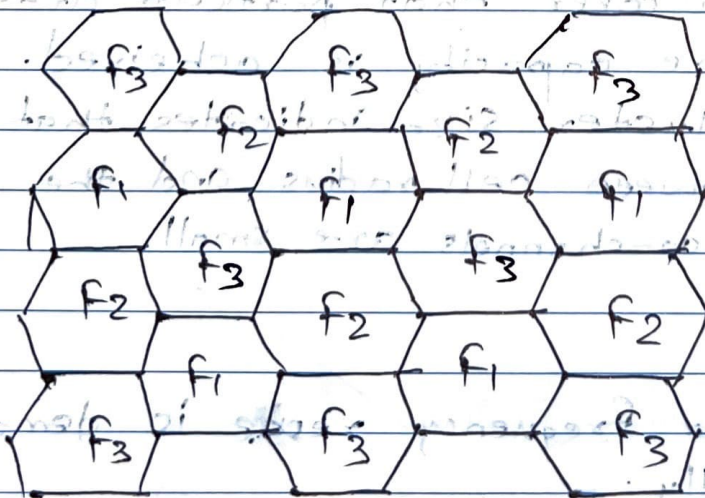 f3 f3 f3
f2 f2
f1 f1 f1
f3 f3
f2 f2 f2
f1 f1
f3 f3 f3